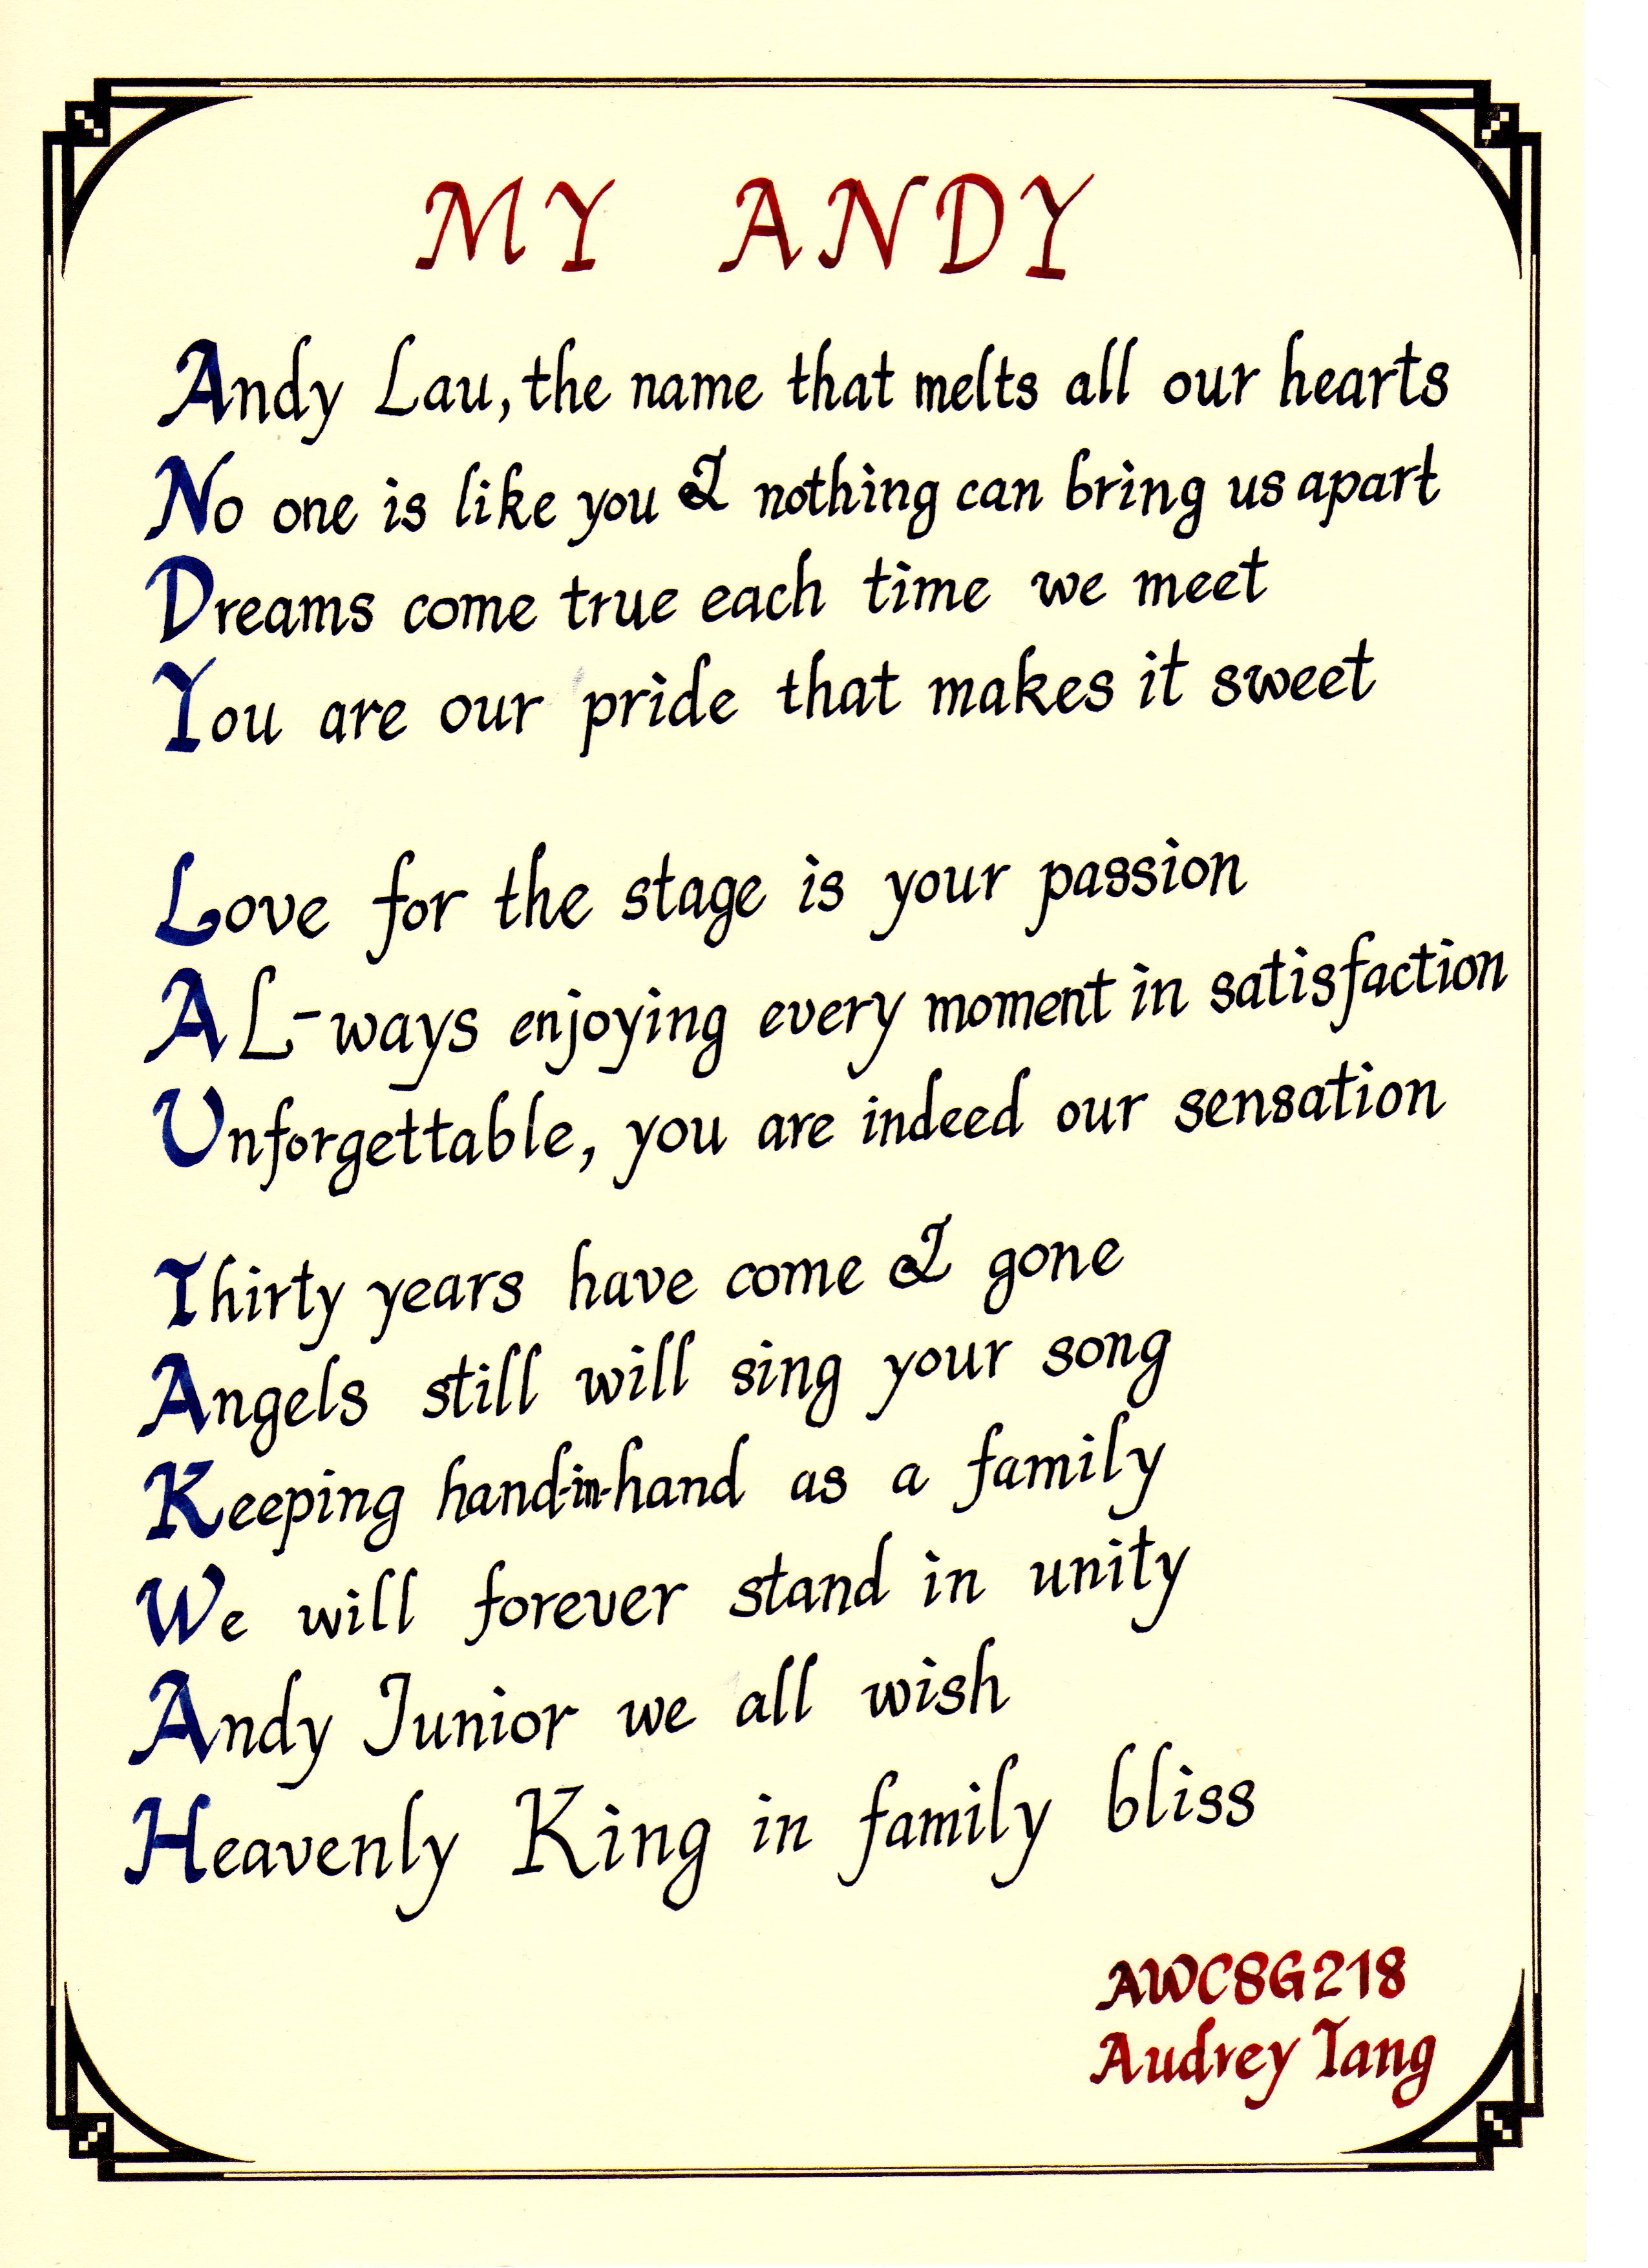 MY ANDY
Andy Lau, the name that melts all our hearts
No one is like you & nothing can bring us apart
Dreams come true each time we meet
You are our pride that makes it sweet
Love for the stage is your passion
AL-ways enjoying every moment in satisfaction
Unforgettable, you are indeed our sensation
Thirty years have come & gone
Angels still will sing your song
Keeping hand-in-hand as a family
We will forever stand in unity
Andy Junior we all wish
Heavenly King in family bliss
AWC8G218
Audrey Tang